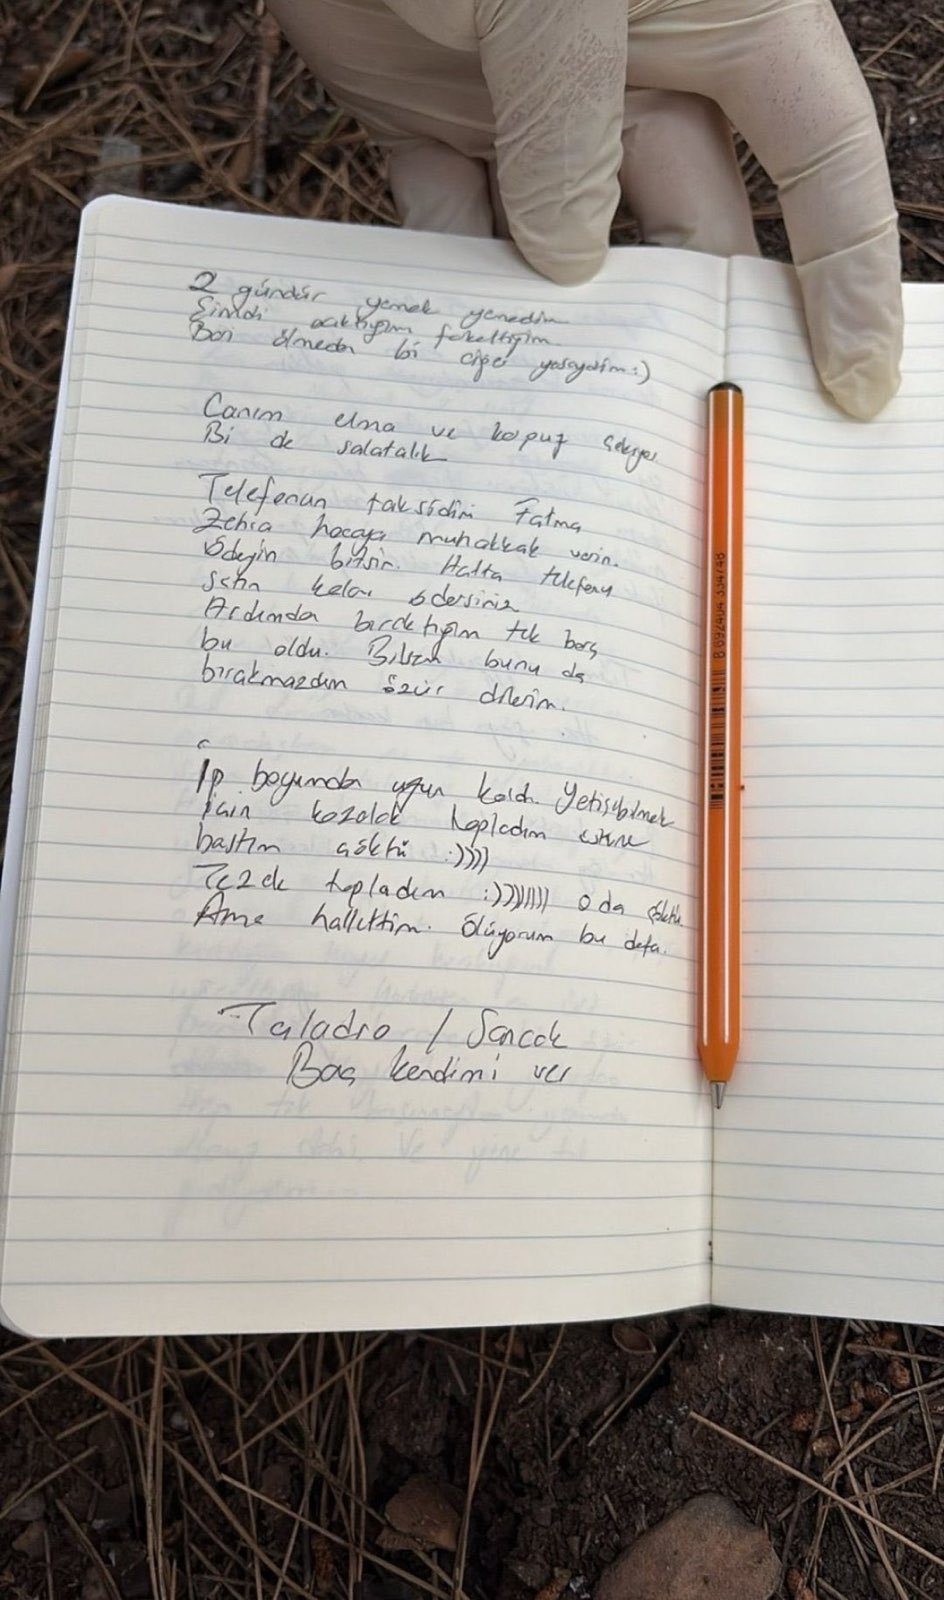 2 gündür yemek yemedim
Şimdi acıktığım fakettiğim.
Bari ölmeden bi ciğer yeseydim:)
Canım elma ve karpuz çekiyor
Bi de salatalık
Telefonun taksidini Fatma
Zehra hocaya muhakkak verin.
Ödeyin bitsin. Hatta telefonu
satın kalanı ödersiniz
Ardımda bıraktığım tek borç
bu oldu. Bilsem bunu da
bırakmazdım özür dilerim.
İp boyumdan uzun kaldı. Yetişebilmek
için kozalak topladım üstüne
bastım çöktü :))))
Tezek topladım :)))))))) o da çöktü.
Ama hallettim. Ölüyorum bu defa.
Taladro / Sancak
Baş kendimi ver
8 692404 334748